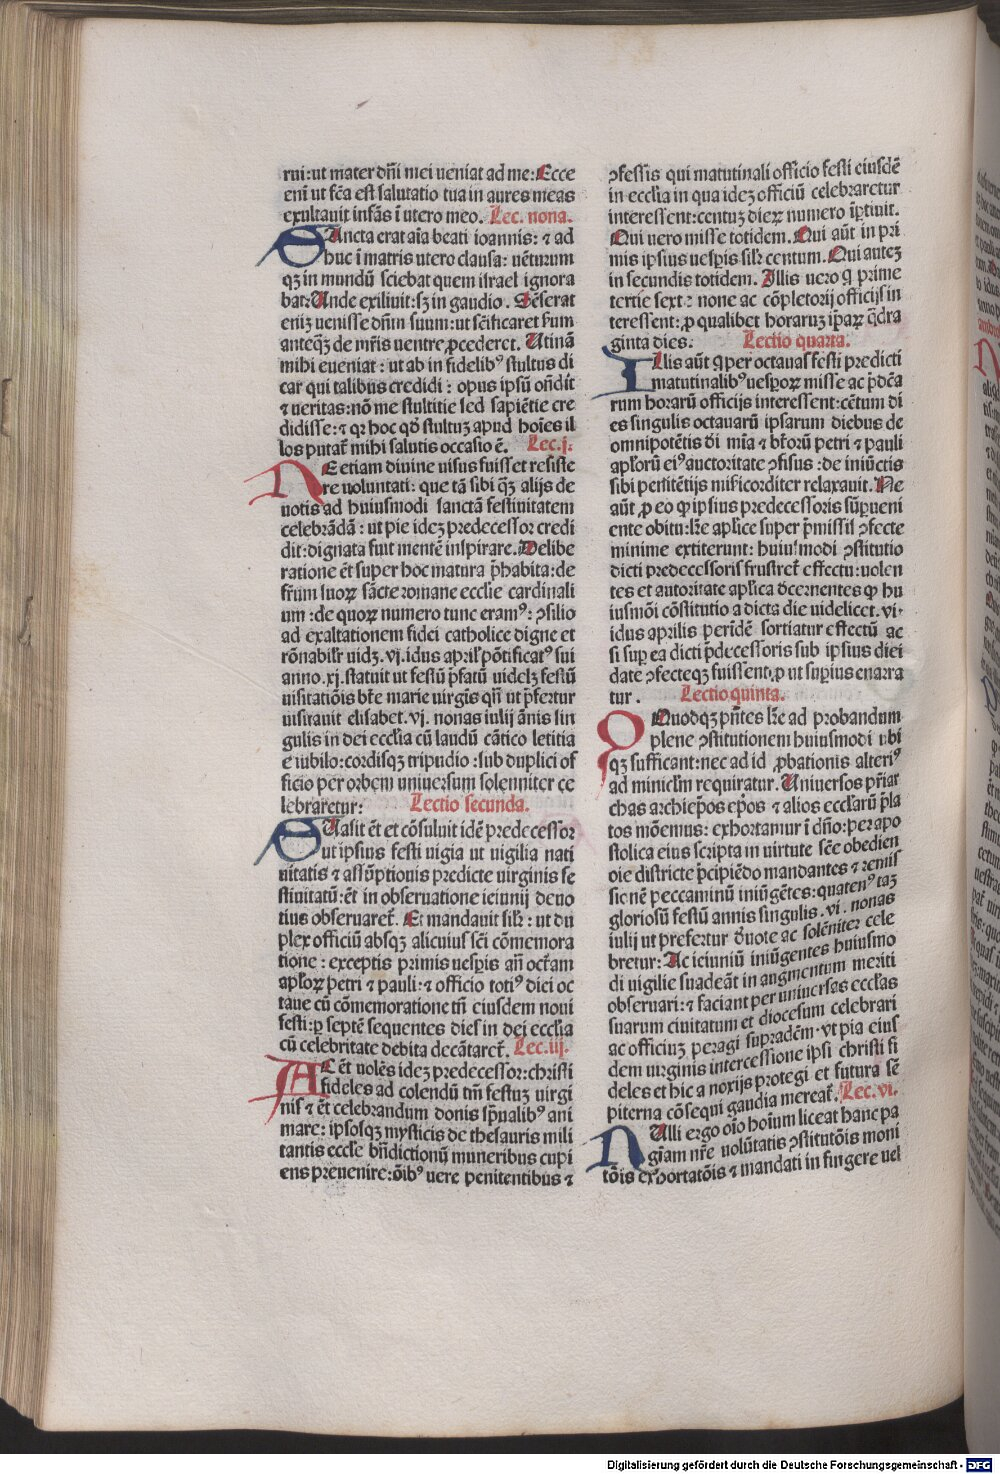 rui : ut mater dn̄i mei ueniat ad me : Ecce
eni̅ ut fc̄a est salutatio tua in aures meas
exultauit infās ī utero meo. Lec. nona.
SAncta erat aīa beati ioannis : ⁊ ad
huc i̅ matris utero clausa : uēturum
qꝫ in mundū sciebat quem israel ignora
bat : Unde exiliuit : sꝫ in gaudio . Sēserat
eniꝫ uenisse dn̄m suum : ut scīficaret sum
anteqꝫ de mr̄is uentre ꝓcederet. Utinā
mihi eueniat : ut ab in fidelibꝰ stultus di
car qui talibus credidi : opus ipsū on̄dit
⁊ ueritas : nō me stultitie sed sapiētie cre
didisse : ⁊ qꝛ hoc qd̄ stultuꝫ apud hoīes il
los putat̄ mihi salutis occasio ē. Lec. j.
NE etiam diuine uisus fuisset resiste
re uoluntati : que tā sibi qꝫ alijs de
uotis ad huiusmodi sanctā festiuitatem
celebrādā : ut pie idez predecessor credi
dit : dignata fuit mentē inspirare. Delibe
ratione ēt super hoc matura p̄habita : de
fr̄um suoꝝ sācte romane ecclie cardinali
um : de quoꝝ numero tunc eramꝰ : ꝯsilio
ad exaltationem fidei catholice digne et
rōnabilr̄ uidꝫ . vj . idus april̄ pōtificatꝰ sui
anno . xj . statuit ut festū p̄fatū uidelꝫ festū
uisitatiōis bt̄e marie uirgīs qn̄ ut p̄fertur
uisitauit elisabet . vj . nonas iulij ānis sin
gulis in dei ecclīa cū laudū cātico letitia
⁊ iubilo : cordisqꝫ tripudio : sub duplici of
ficio per orbem uniuersum solenniter ce
lebraretur : Lectio secunda.
SUasit ēt et cōsuluit idē predecessor
ut ipsius festi uigia ut uigilia nati
uitatis ⁊ assūptionis predicte uirginis fe
stiuitatū : ēt in obseruatione ieiunij deuo
tius obseruaret̄. Et mandauit silr̄ : ut du
plex officiū absqꝫ alicuius scī cōmemora
tione : exceptis primis uesp̄is an̄ oct̄am
apl̄oꝝ petri ⁊ pauli : ⁊ officio totiꝰ diei oc
taue cū cōmemoratione tn̄ eiusdem noui
festi : ꝑ septē sequentes dies in dei ecclīa
cū celebritate debita decātaret̄. Lec. iij.
AC ēt uolēs idez predecessor : christi
fideles ad colendū tm̄ festuꝫ uirgi
nis ⁊ ēt celebrandum donis sp̄ualibꝰ ani
mare : ipsosqꝫ mysticis de thesauris mili
tantis eccl̄e bn̄dictionū muneribus cupi
ens preuenire : oībꝰ uere penitentibus ⁊
ꝯfessis qui matutinali officio festi eiusdē
in ecclīa in qua idez officiū celebraretur
interessent : centuꝫ dieꝝ numero ip̄tiuit.
Qui uero misse totidem. Qui aūt in pri
mis ipsius uesp̄is silr̄ centum. Qui autez
in secundis totidem. Illis uero ꝗ prime
tertie sext⁊ none ac cōpletorij officijs in
teressent : ꝓ qualibet horaruꝫ ip̄aꝝ q̄dra
ginta dies. Lectio quarta.
ILlis aūt ꝗ per octauas festi predicti
matutinalibꝰ uesp̄oꝝ misse ac p̄dc̄a
rum horarū officijs interessent : cētum di
es singulis octauarū ipsarum diebus de
omnipotētis dī mīa ⁊ bt̄orū petri ⁊ pauli
apl̄orū eiꝰ auctoritate ꝯfisus : de iniūctis
sibi penitētijs misericorditer relaxauit. Ne
aūt ꝓ eo ꝙ ipsius predecessoris sūꝑueni
ente obitu : lr̄e apl̄ice super p̄missis ꝯfecte
minime extiterunt : huiusmodi ꝯstitutio
dicti predecessoris frustret̄ effectu : uolen
tes et autoritate apl̄ica d̄cernentes ꝙ hu
iusmōi cōstitutio a dicta die uidelicet . vi .
idus aprilis perīdē sortiatur effectū ac
si suꝑ ea dicti p̄decessoris sub ipsius diei
date ꝯfecteqꝫ fuissent, ꝓ ut suꝑius enarra
tur. Lectio quinta.
QUodqꝫ pn̄tes lr̄e ad probandum
plene ꝯstitutionem huiusmodi ubi
qꝫ sufficant : nec ad id ꝓbationis alteriꝰ
ad miniclm̄ requiratur. Uniuersos pr̄iar
chas archiep̄os ep̄os ⁊ alios eccl̄arū p̄la
tos mōemus : exhortamur ī dn̄o : per apo
stolica eius scripta in uirtute sc̄e obedien
tie districte p̄cipiēdo mandantes ⁊ remis
sionē peccaminū iniūgētes : quatenꝰ taꝫ
gloriosū festū annis singulis . vi . nonas
iulij ut prefertur d̄uote ac solēniter cele
bretur : Ac ieiuniū iniūgentes huiusmo
di uigilie suadeāt in augmentum meriti
obseruari : ⁊ faciant per uniuersas eccl̄as
suarum ciuitatum et diocesum celebrari
ac officiuꝫ peragi supradēm . vt pia eius
dem uirginis intercessione ipsi christi fi
deles et hic a noxijs protegi et futura sē
piterna cōsequi gaudia mereat̄. Lec. vi.
NUlli ergo oīo hoīum liceat hanc pa
gīam nr̄e uolūtatis ꝯstitutōis moni
tōis exhortatōis ⁊ mandati in fingere uel
Digitalisierung gefördert durch die Deutsche Forschungsgemeinschaft - DFG